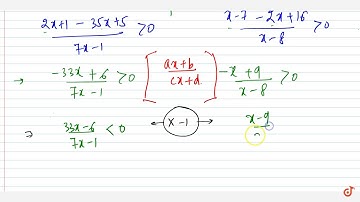 2x+1 - 35x+5 / 7x-1 > 0    x-7 - 2x+16 / x-8 > 0
→ -33x + 6 / 7x-1 > 0 [ax+b / cx+d] -x+9 / x-8 > 0
⇒ 33x-6 / 7x-1 < 0 ← x-1 → x-9